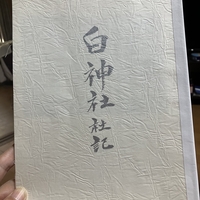 白神社社記